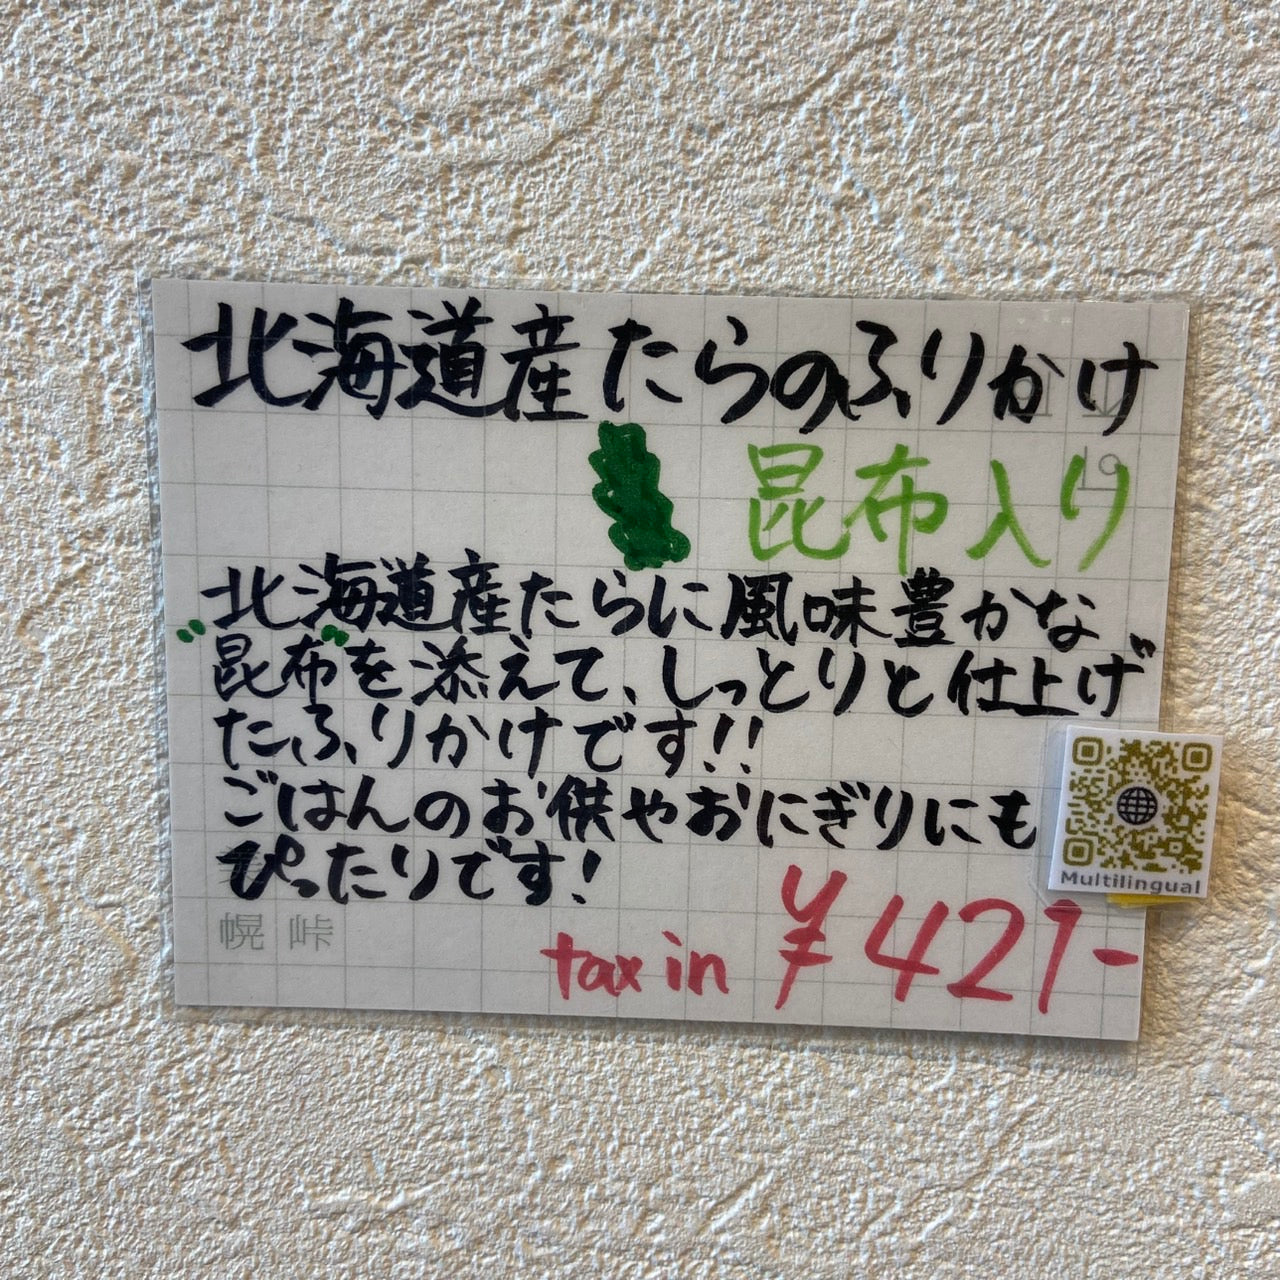 北海道産たらのふりかけ
昆布入り
北海道産たらに風味豊かな
"昆布"を添えて、しっとりと仕上げ
たふりかけです!!
ごはんのお供やおにぎりにも
ぴったりです!
幌 峠
tax in ¥421-
Multilingual